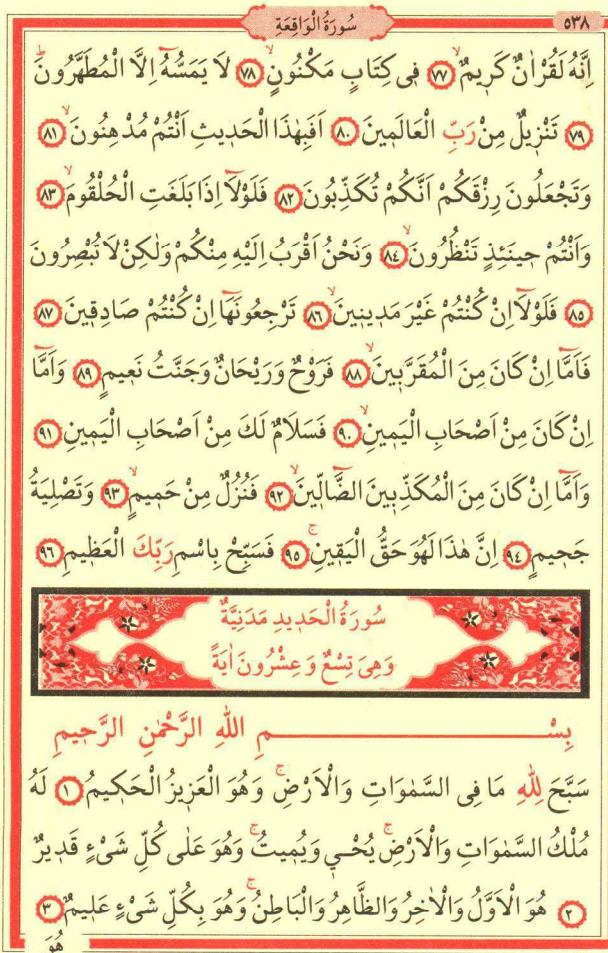 سُورَةُ الْوَاقِعَةِ ٥٣٨
اِنَّهُ لَقُرْاٰنٌ كَر۪يمٌۙ ﴿٧٧﴾ ف۪ي كِتَابٍ مَكْنُونٍۙ ﴿٧٨﴾ لَا يَمَسُّهُٓ اِلَّا الْمُطَهَّرُونَۜ
﴿٧٩﴾ تَنْز۪يلٌ مِنْ رَبِّ الْعَالَم۪ينَ ﴿٨٠﴾ اَفَبِهٰذَا الْحَد۪يثِ اَنْتُمْ مُدْهِنُونَۙ ﴿٨١﴾
وَتَجْعَلُونَ رِزْقَكُمْ اَنَّكُمْ تُكَذِّبُونَ ﴿٨٢﴾ فَلَوْلَٓا اِذَا بَلَغَتِ الْحُلْقُومَۙ ﴿٨٣﴾
وَاَنْتُمْ ح۪ينَئِذٍ تَنْظُرُونَۙ ﴿٨٤﴾ وَنَحْنُ اَقْرَبُ اِلَيْهِ مِنْكُمْ وَلٰكِنْ لَا تُبْصِرُونَ
﴿٨٥﴾ فَلَوْلَٓا اِنْ كُنْتُمْ غَيْرَ مَد۪ين۪ينَۙ ﴿٨٦﴾ تَرْجِعُونَهَٓا اِنْ كُنْتُمْ صَادِق۪ينَ ﴿٨٧﴾
فَاَمَّٓا اِنْ كَانَ مِنَ الْمُقَرَّب۪ينَۙ ﴿٨٨﴾ فَرَوْحٌ وَرَيْحَانٌ وَجَنَّتُ نَع۪يمٍ ﴿٨٩﴾ وَاَمَّٓا
اِنْ كَانَ مِنْ اَصْحَابِ الْيَم۪ينِۙ ﴿٩٠﴾ فَسَلَامٌ لَكَ مِنْ اَصْحَابِ الْيَم۪ينِ ﴿٩١﴾
وَاَمَّٓا اِنْ كَانَ مِنَ الْمُكَذِّب۪ينَ الضَّٓالّ۪ينَۙ ﴿٩٢﴾ فَنُزُلٌ مِنْ حَم۪يمٍۙ ﴿٩٣﴾ وَتَصْلِيَةُ
جَح۪يمٍ ﴿٩٤﴾ اِنَّ هٰذَا لَهُوَ حَقُّ الْيَق۪ينِۚ ﴿٩٥﴾ فَسَبِّحْ بِاسْمِ رَبِّكَ الْعَظ۪يمِ ﴿٩٦﴾
سُورَةُ الْحَد۪يدِ مَدَنِيَّةٌ
وَهِيَ تِسْعٌ وَعِشْرُونَ اٰيَةً
بِسْمِ اللّٰهِ الرَّحْمٰنِ الرَّح۪يمِ
سَبَّحَ لِلّٰهِ مَا فِي السَّمٰوَاتِ وَالْاَرْضِۚ وَهُوَ الْعَز۪يزُ الْحَك۪يمُ ﴿١﴾ لَهُ
مُلْكُ السَّمٰوَاتِ وَالْاَرْضِۚ يُحْي۪ وَيُم۪يتُۚ وَهُوَ عَلٰى كُلِّ شَيْءٍ قَد۪يرٌ
﴿٢﴾ هُوَ الْاَوَّلُ وَالْاٰخِرُ وَالظَّاهِرُ وَالْبَاطِنُۚ وَهُوَ بِكُلِّ شَيْءٍ عَل۪يمٌ ﴿٣﴾
هُوَ